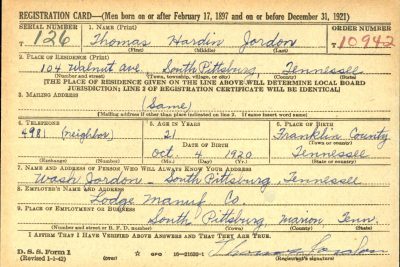 REGISTRATION CARD—(Men born on or after February 17, 1897 and on or before December 31, 1921)
SERIAL NUMBER 1. NAME (Print) ORDER NUMBER
T 126 Thomas Hardin Jordon T10942
(First) (Middle) (Last)
2. PLACE OF RESIDENCE (Print)
104 Walnut Ave. South Pittsburg, Tennessee
(Number and street) (Town, township, village, or city) (County) (State)
[THE PLACE OF RESIDENCE GIVEN ON THE LINE ABOVE WILL DETERMINE LOCAL BOARD
JURISDICTION; LINE 2 OF REGISTRATION CERTIFICATE WILL BE IDENTICAL]
3. MAILING ADDRESS
(Same)
[Mailing address if other than place indicated on line 2. If same insert word same]
4. TELEPHONE 5. AGE IN YEARS 6. PLACE OF BIRTH
4981 (neighbor) 21 Franklin County
DATE OF BIRTH (Town or county)
Oct. 4 1920 Tennessee
(Exchange) (Number) (Mo.) (Day) (Yr.) (State or country)
7. NAME AND ADDRESS OF PERSON WHO WILL ALWAYS KNOW YOUR ADDRESS
Wash Jordon - South Pittsburg, Tennessee
8. EMPLOYER'S NAME AND ADDRESS
Lodge Manuf. Co.
9. PLACE OF EMPLOYMENT OR BUSINESS
South Pittsburg Marion Tenn.
(Number and street or R. F. D. number) (Town) (County) (State)
I AFFIRM THAT I HAVE VERIFIED ABOVE ANSWERS AND THAT THEY ARE TRUE.
D. S. S. Form 1
(Revised 1-1-42) (over) GPO 16—21630-1